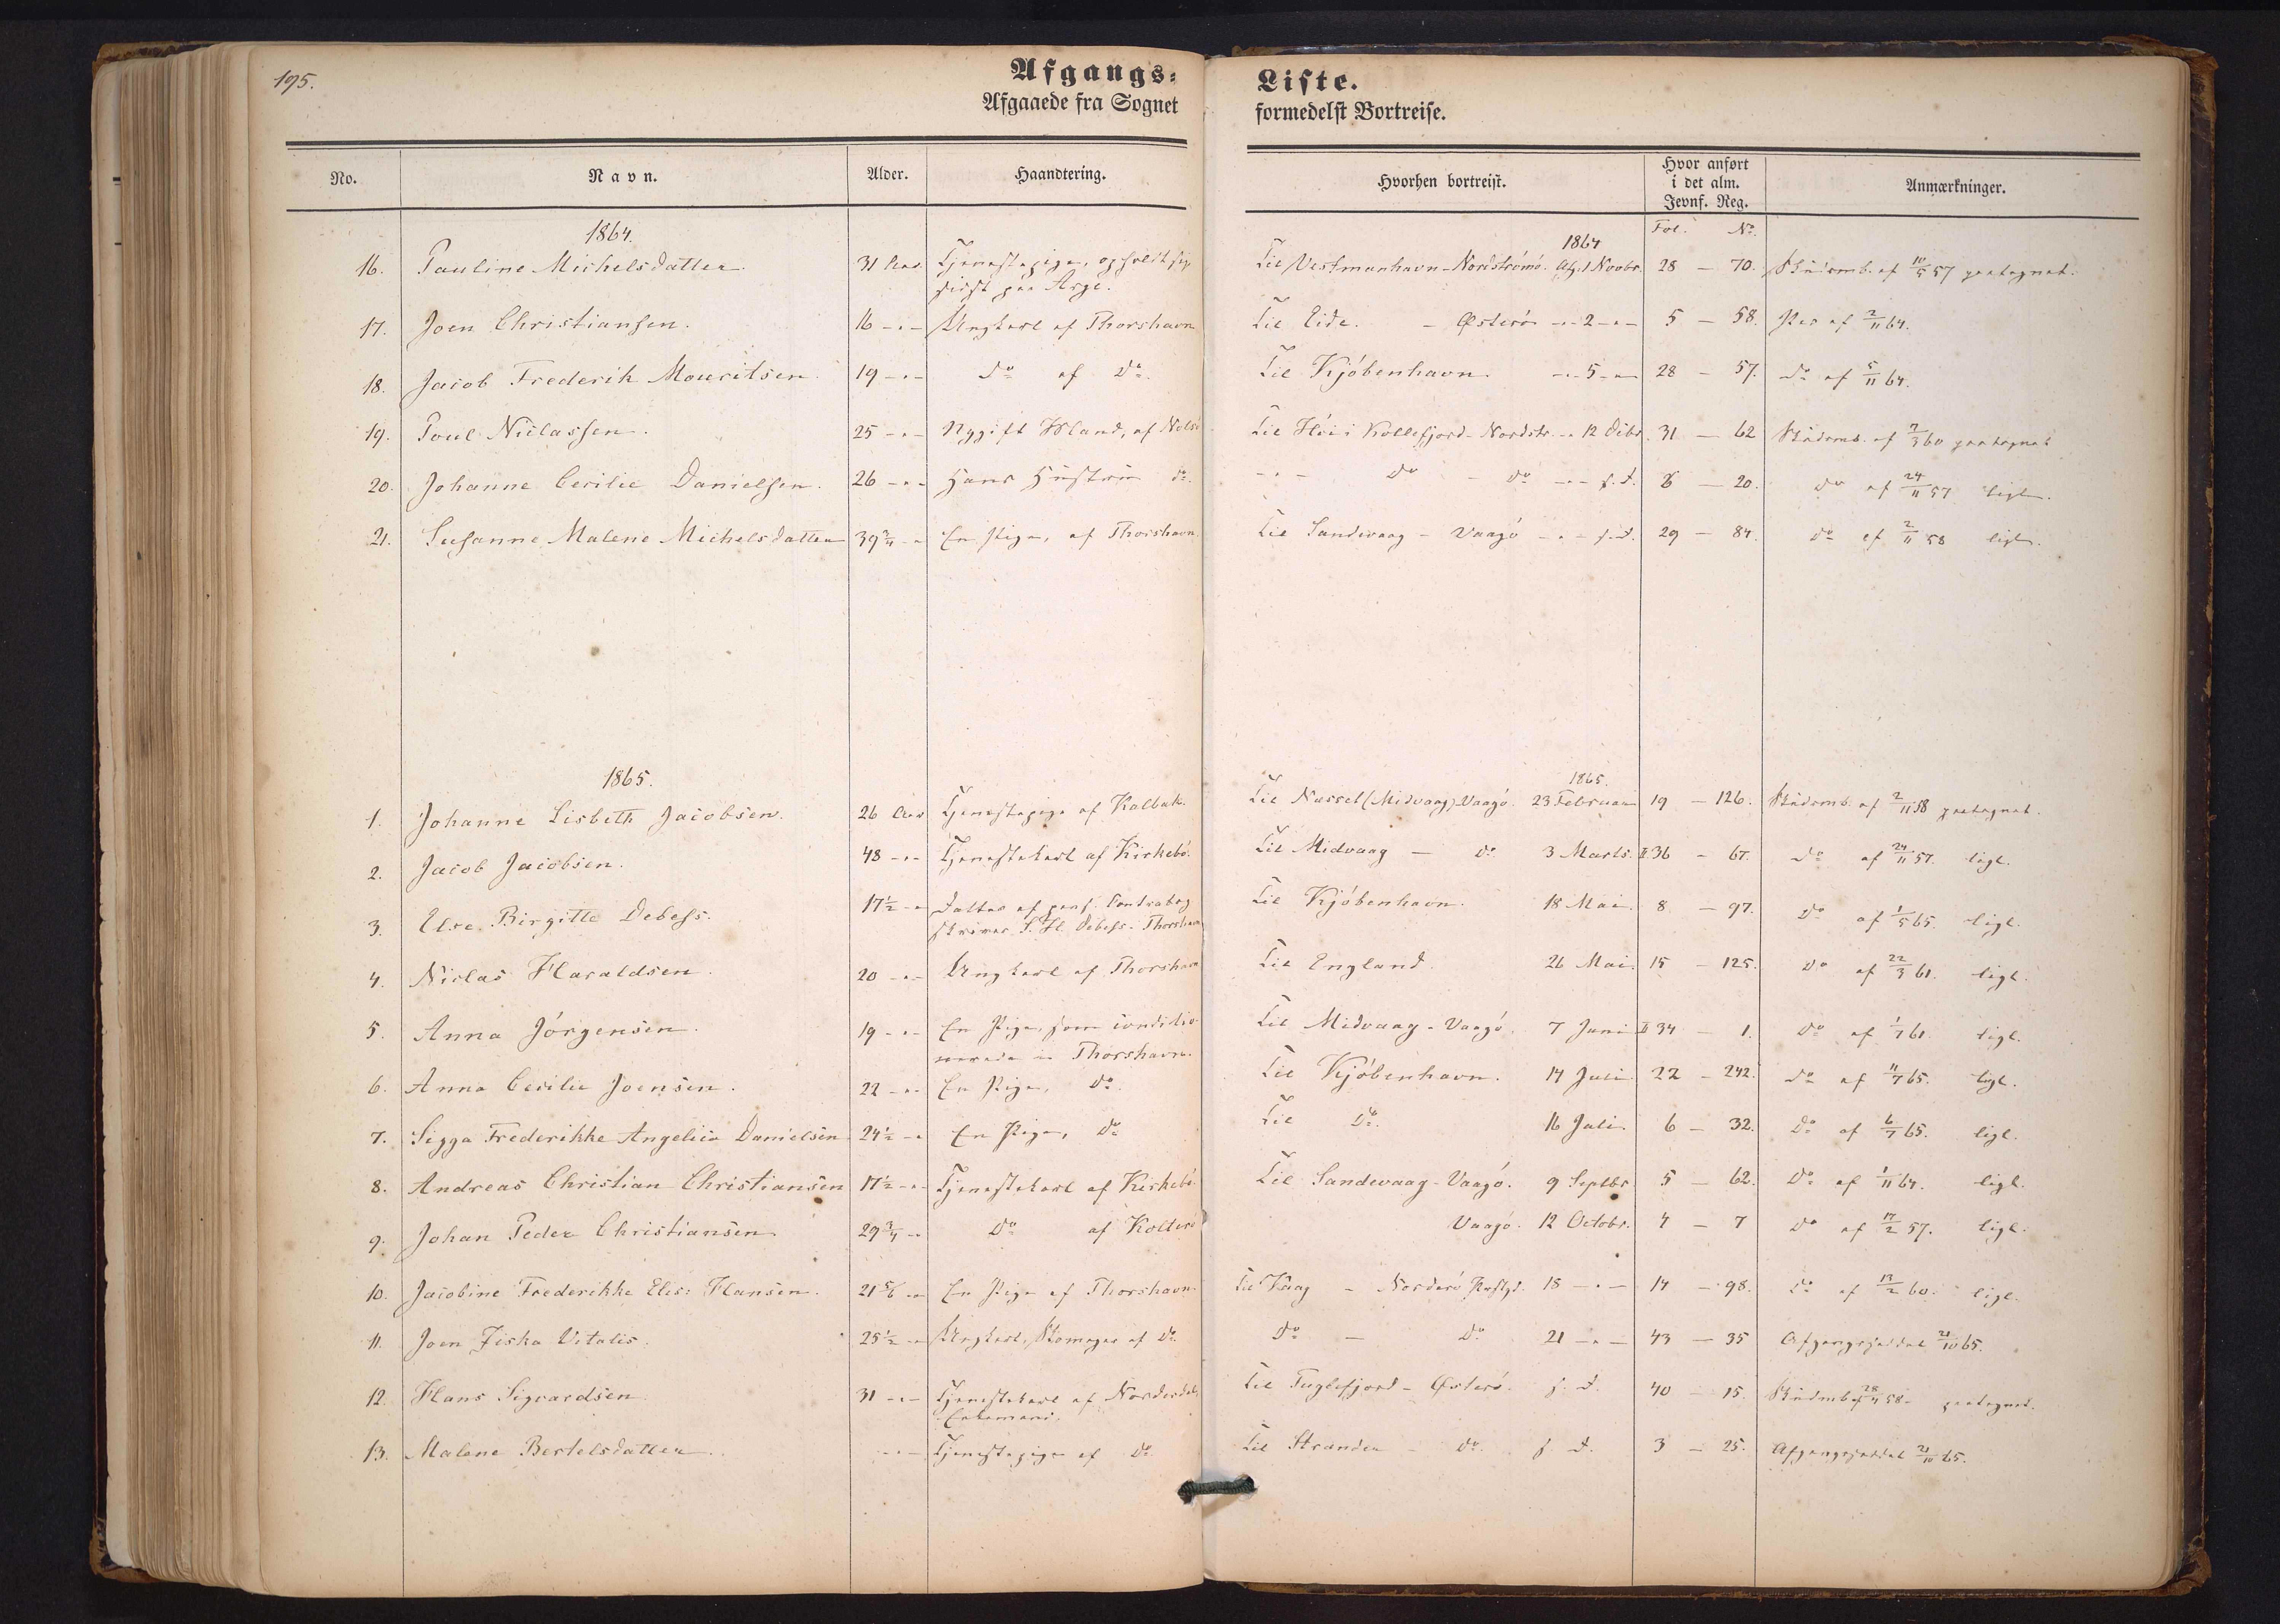 195.
Afgangs-
Afgaaede fra Sognet
Liste.
formedelst Bortreise.
No. Navn. Alder. Haandtering. Hvorhen bortreist. Hvor anført i det alm. Jevnf. Reg. Anmærkninger.
Fol. No.
1864. 1864
16. Pauline Michelsdatter. 31 Aar. Tjenestepige, opholdt sig Til Vestmanhavn - Nordströmö. Afg. 1 Novbr. 28 - 70. Skudsmb. af 10/5 57 paategnet.
sidst paa Arge.
17. Joen Christiansen. 16 - " - Ungkarl af Thorshavn Til Eide. - Østerö - " - 2 - " - 5 - 58. Pas af 2/11 64.
18. Jacob Frederik Mouritsen. 19 - " - Do af Do. Til Kjöbenhavn. - " - 5 - " - 28 - 57. Do af 5/11 64.
19. Poul Niclassen. 25 - " - Nygift Mand, af Nolsö Til Hói i Kollefjord - Nordstr. - " 12 Decbr. 31 - 62 Skudsmb. af 7/3 60 paategnet
20. Johanne Cecilie Danielsen. 26 - " - Hans Hustru do. - " - Do - Do - " - s. D. 8 - 20. Do af 24/11 57 ligl.
21. Susanne Malene Michelsdatter 39 3/4 - " En Pige, af Thorshavn Til Sandevaag - Vaagö - " - s. D. 29 - 84. Do af 2/11 58 ligl.
1865. 1865.
1. Johanne Lisbeth Jacobsen. 26 Aar Tjenestepige af Kalbak. Til Nussel (Midvaag) Vaagö. 23 Februar 19 - 126. Skudsmb. af 2/11 58 paategnet.
2. Jacob Jacobsen. 48 - " - Tjenestekarl af Kirkebö. Til Midvaag - do. 3 Marts. II 36 - 67. Do af 24/11 57. ligl.
3. Else Birgitte Debess. 17 1/2 - " Datter af pens. Contrabog Til Kjöbenhavn. 18 Mai. 8 - 97. Do af 1/5 65. ligl.
skriver S. H. Debess - Thorshavn
4. Niclas Haraldsen. 20 - " - Ungkarl af Thorshavn Til England. 26 Mai. 15 - 125. Do af 22/3 61. ligl.
5. Anna Jörgensen. 19 - " - En Pige, som conditio- Til Midvaag - Vaagö. 7 Juni II 34 - 1. Do af 1/7 61 ligl.
nerede i Thorshavn.
6. Anna Cecilie Joensen. 22 - " - En Pige, Do Til Kjöbenhavn. 14 Juli 22 - 242. Do af 11/7 65. ligl.
7. Sigga Frederikke Angelica Danielsen 24 1/2 - " En Pige, Do Til Do. 16 Juli. 6 - 32. Do af 6/7 65. ligl.
8. Andreas Christian Christiansen 17 1/2 - " Tjenestekarl af Kirkebö. Til Sandevaag - Vaagö. 9 Septbr. 5 - 62. Do af 1/11 64. ligl.
9. Johan Peder Christiansen 29 3/4 - " Do af Kolterö Vaagö. 12 Octobr. 4 - 7 Do af 17/2 57. ligl.
10. Jacobine Frederikke Elis: Hansen. 21 5/6 - " En Pige af Thorshavn. Til Vaag - Norderö Præstgd. 18 - " - 14 - 98. Do af 13/2 60. ligl.
11. Joen Ziska Vitalis. 25 1/2 - " Ungkarl, Skomager af Do. Do - Do. 21 - " - 43 - 35 Afgangsseddel 21/10 65.
12. Hans Sigvardsen 31 - " - Tjenestekarl af Norderdal Til Fuglefjord - Østerö. s. D. 40 - 15. Skudmb. af 28/11 58 - paategnet.
13. Malene Bertelsdatter. - " - Tjenestepige af Do. Til Strander - Do. s. D. 3 - 25. Afgangsseddel 21/10 65.